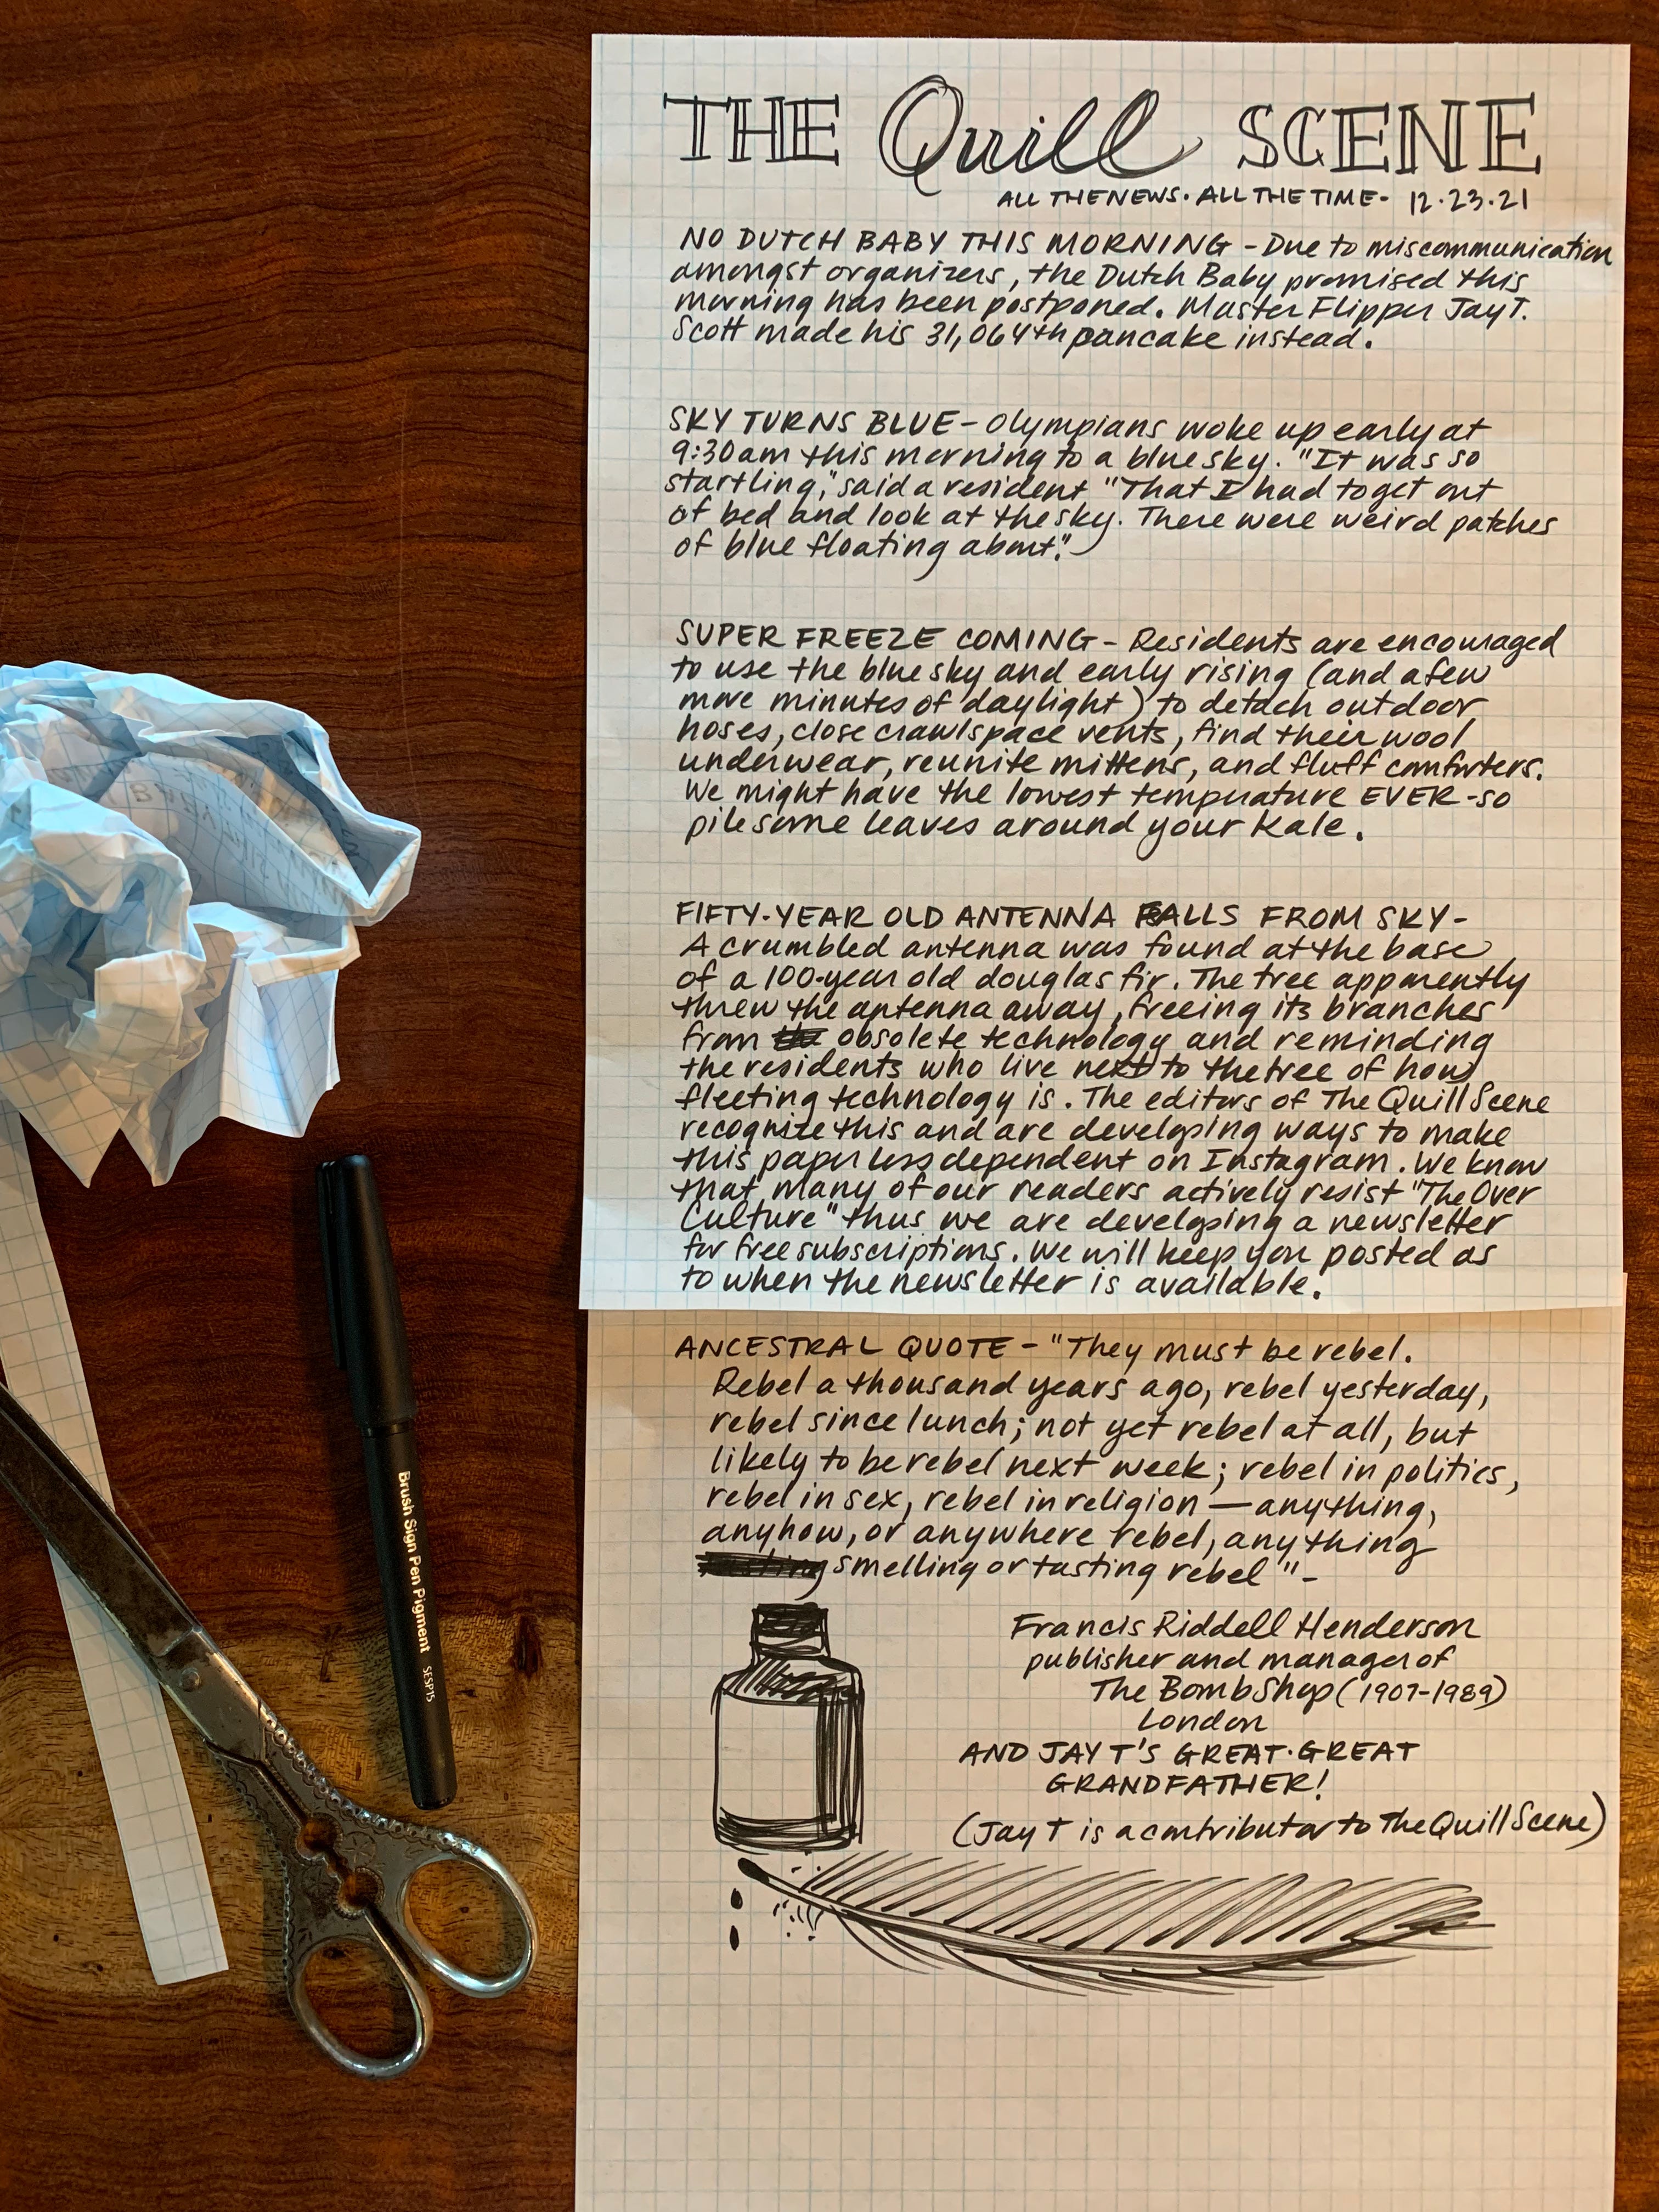 THE Quill SCENE
ALL THE NEWS. ALL THE TIME - 12.23.21
NO DUTCH BABY THIS MORNING - Due to miscommunication
amongst organizers, the Dutch Baby promised this
morning has been postponed. Master Flipper Jay T.
Scott made his 31,064th pancake instead.
SKY TURNS BLUE - Olympians woke up early at
9:30am this morning to a blue sky. "It was so
startling," said a resident "That I had to get out
of bed and look at the sky. There were weird patches
of blue floating about."
SUPER FREEZE COMING - Residents are encouraged
to use the blue sky and early rising (and a few
more minutes of daylight) to detach outdoor
hoses, close crawlspace vents, find their wool
underwear, reunite mittens, and fluff comforters.
We might have the lowest temperature EVER - so
pile some leaves around your kale.
FIFTY-YEAR OLD ANTENNA FALLS FROM SKY -
A crumbled antenna was found at the base
of a 100-year old douglas fir. The tree apparently
threw the antenna away, freeing its branches
from obsolete technology and reminding
the residents who live next to the tree of how
fleeting technology is. The editors of The Quill Scene
recognize this and are developing ways to make
this paper less dependent on Instagram. We know
that many of our readers actively resist "The Over
Culture" thus we are developing a newsletter
for free subscriptions. We will keep you posted as
to when the newsletter is available.
ANCESTRAL QUOTE - "They must be rebel.
Rebel a thousand years ago, rebel yesterday,
rebel since lunch; not yet rebel at all, but
likely to be rebel next week; rebel in politics,
rebel in sex, rebel in religion — anything,
anyhow, or anywhere rebel, anything
smelling or tasting rebel" -
Francis Riddell Henderson
publisher and manager of
The Bomb Shop (1907-1989)
London
AND JAY T'S GREAT-GREAT
GRANDFATHER!
(Jay T is a contributor to The Quill Scene)
Brush Sign Pen Pigment SESP15